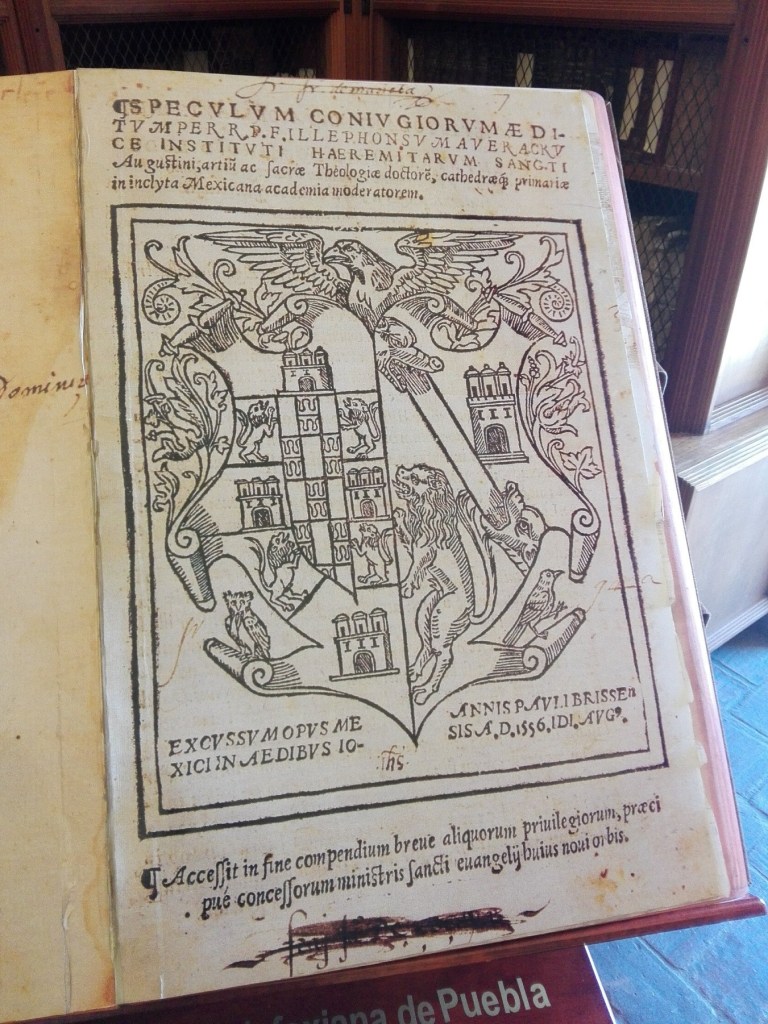 ¶SPECVLVM CONIVGIORVM ÆDI-
TVM PER R.P.F. ILLEPHONSVM A VERACRV
CE INSTITVTI HAEREMITARVM SANCTI
Augustini, artiū ac sacræ Theologiæ doctorē, cathedræq; primariæ
in inclyta Mexicana academia moderatorem.
EXCVSSVM OPVS ME
XICI IN AEDIBVS IO-
ANNIS PAVLI BRISSEn
SIS A.D.1556. IDI. AVG⁹.
ihs
¶ Accessit in fine compendium breue aliquorum priuilegiorum, præci
pué concessorum ministris sancti euangelij huius noui orbis.
de Puebla